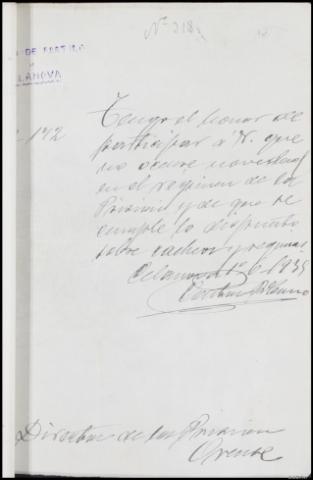 Nº 218
DE PARTIDO
LANOVA
142
Tengo el honor de
participar á V. que
no ocurre novedad
en el regimen de la
Prision y de que se
cumple lo dispuesto
sobre cacheos y requisas
Celanova 1º 6-1935
Director de la Prision
Orense